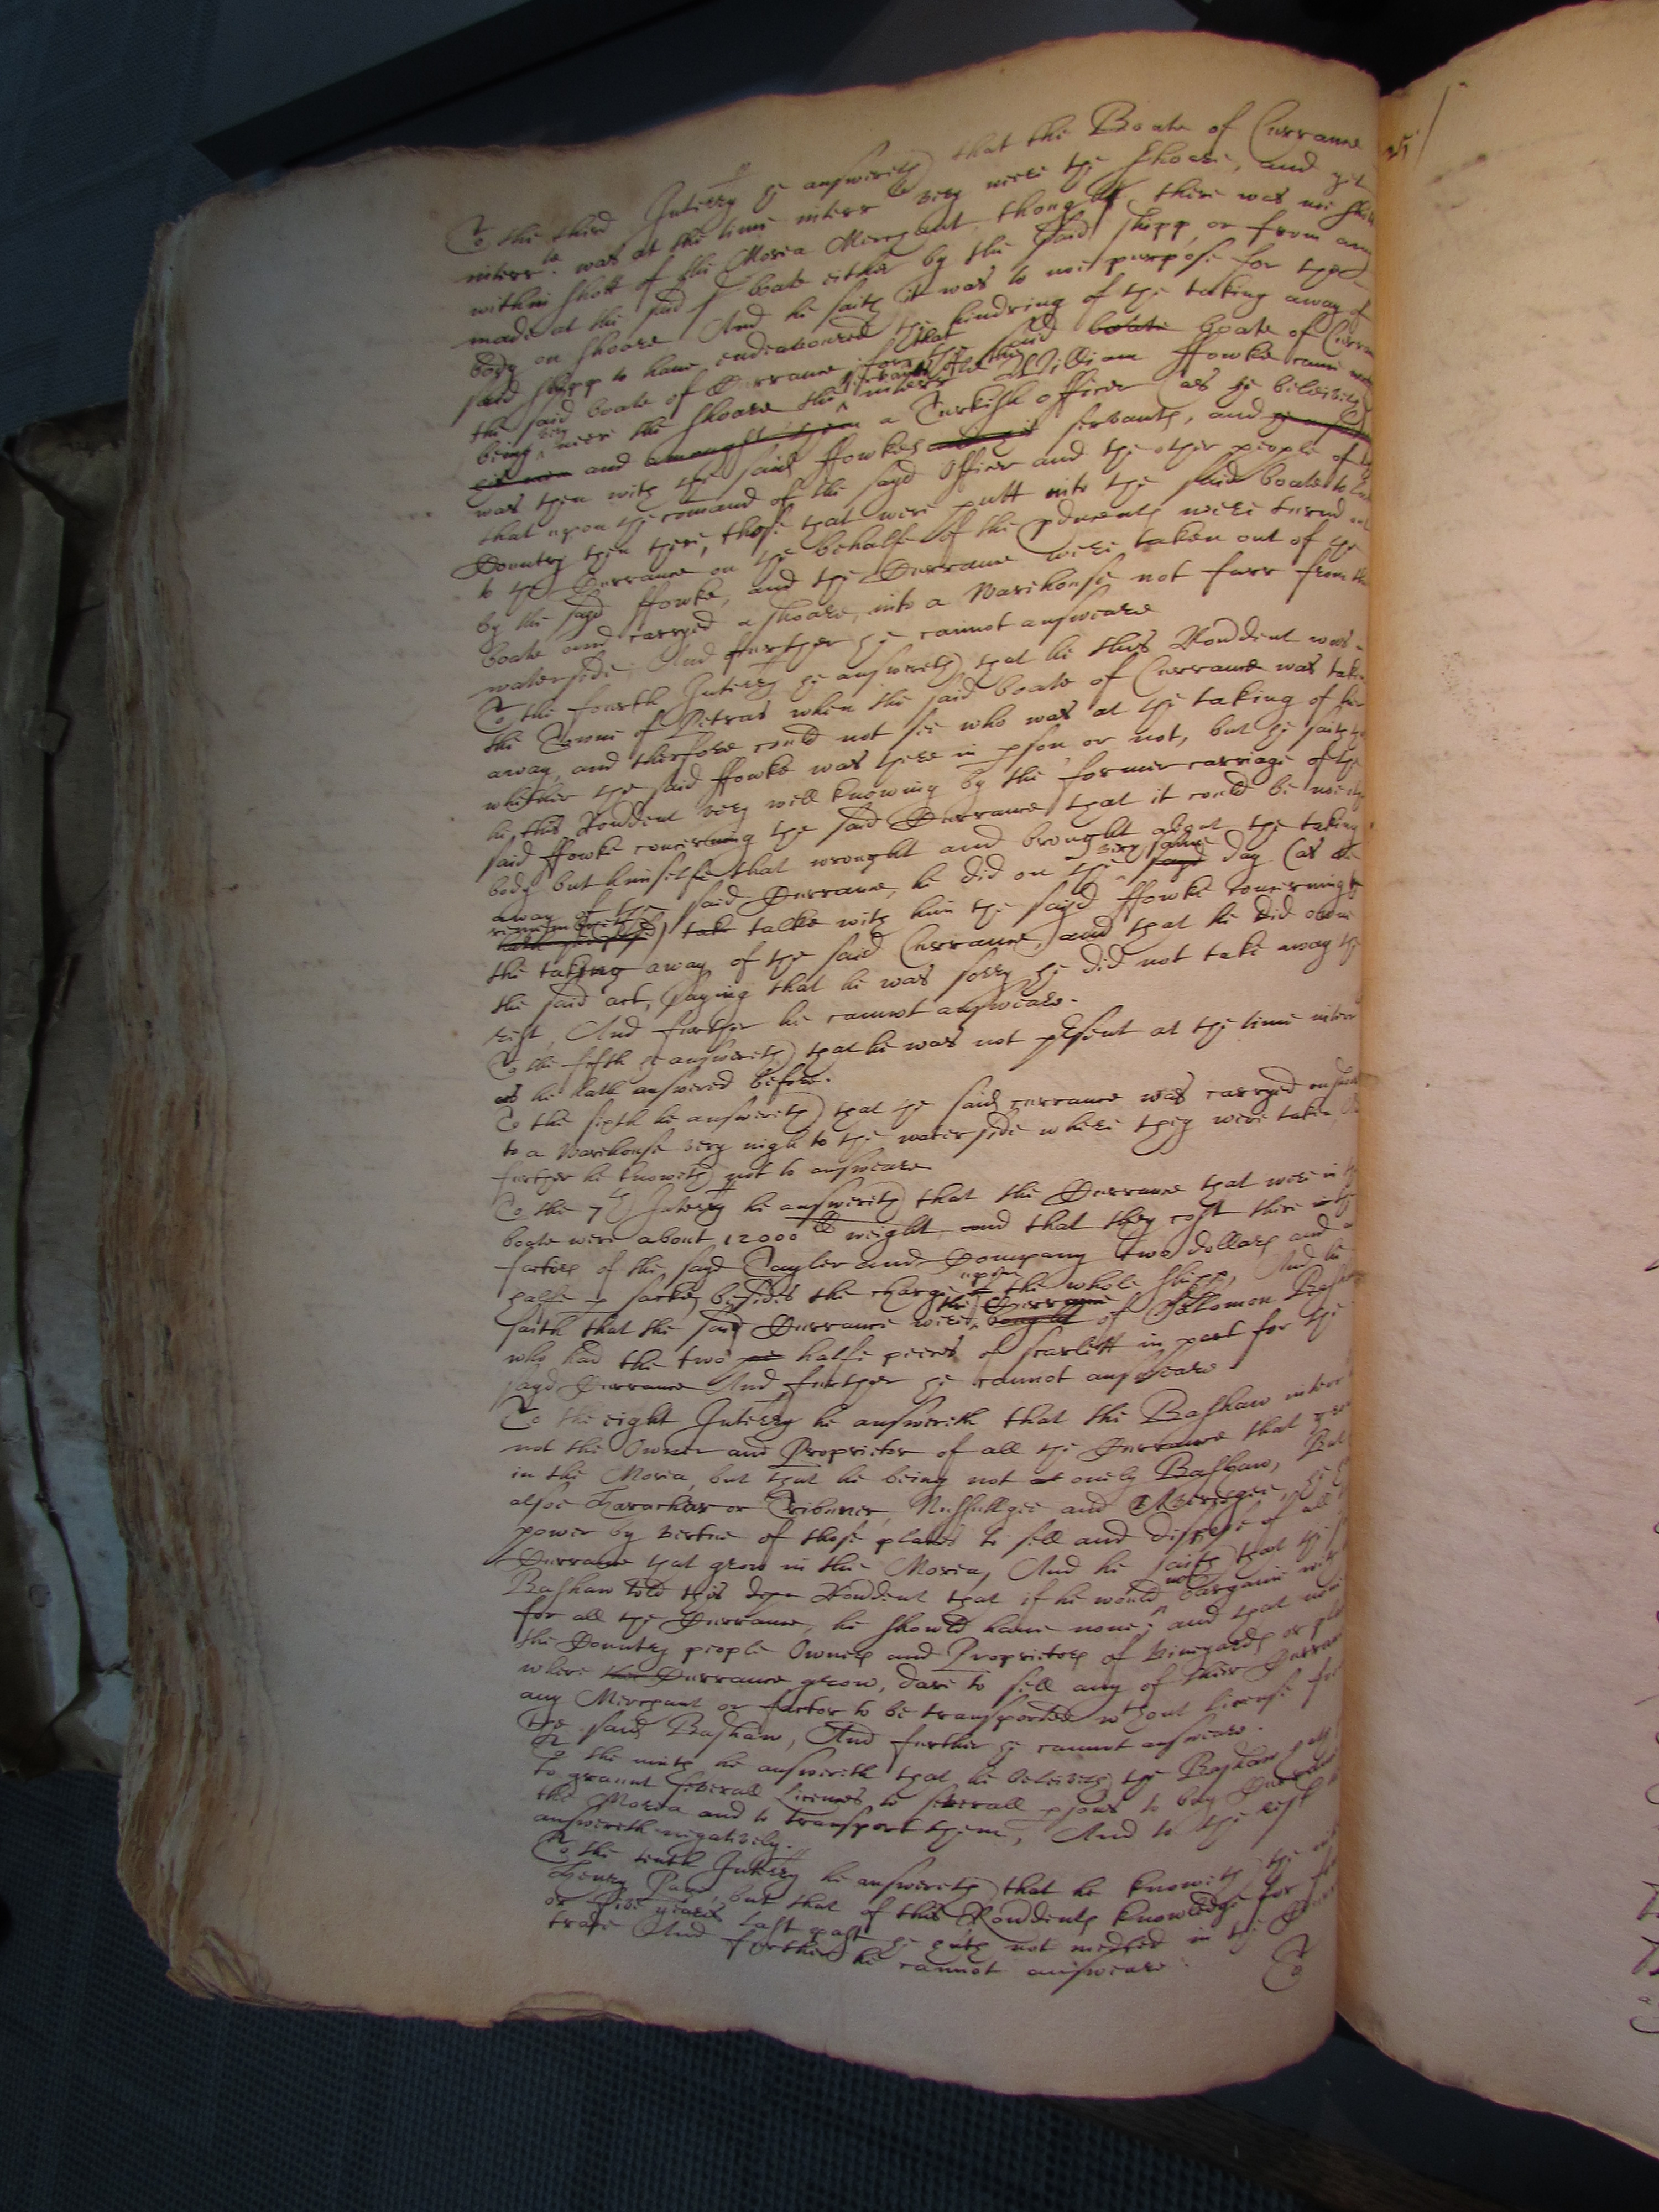 To the third Interry he answereth that the Boate of Currance
interr<sup>te</sup> was at the time interr<sup>te</sup> very neere the shoare, and yet
within shott of the Morea Merchant, though there was noe shott
made at the said boate either by the said shipp or from any
body on shoare And he saith it was to noe purpose for the
said shipp to have endeavoured the hindring of the taking away of
the said boate of Currance, for that the said boate boate of Curran
being very neere the shoare the servants of the interr William ffowke came
his men and amongst them a Turkish officer (as he beleiveth)
was then with the said ffowkes servants, and
that upon the comand of the sayd Officer and the other people of the
Country then there, those that were putt into the said boate to
to the Currance on the behalfe of the pducents were turnd out
by the sayd ffowke, and the Currance were taken out of the
boate and carryed a shoare, into a Warehouse not farr from the
waterside, And further he cannot answeare
To the fourth Interry he answereth that he this Rondent was
the Towne of Petras when the said boate of Currance was taken
away, and therfore could not see who was at the taking of
whether the said ffowke was there in pson or not, but he saith
he, this Rondent very well knowing by the former carriage of the
said ffowke concerning the said Currance that it could be noe
body but himselfe that wrought and brought about the taking
away of the said Currance, he did on the very same sayd day (as he
remembreth) take talke with him the sayd ffowke concerning
the taking away of the said Currance, and that he did owne
the said act, saying that he was sorry he did not take away the
rest, And further he cannot answeare.
To the fifth he answereth that he was not psent at the time interr
as he hath answered before.
To the sixth he answereth that the said currance was carryed on shoare
to a Warehouse very nigh to the waterside where they were taken
further he knoweth not to answeare
To the 7<sup>th</sup> Interry he answereth that the Currance that were in
boate were about 12000<sup>ll</sup> weight and that they cost there
factors of the sayd Tayler and Company two dollars and a
halfe p sacke besides the charge upon the whole shipp, And he
saith that the said Currance were the Currance bought of Sallomon Bashaw
who had the two halfe peeces of scarlett in part for the
sayd Currance And further he cannot answeare
To the eight Interry he answereth that the Bashaw interr
not the Owner and Proprietor of all the Currance that grow
in the Morea, but that he being not at onely Bashaw, But
alsoe Harachar or Tributer, and
power by vertue of those places to sell and dispose of all
Currance that grow in the Morea, And he saith that the
Bashaw told this depo Rondent that if he would not bargaine with
for all the Currance, he should have none; and that
the Country people Owners and Proprietors of Vineyards or
where the Currance grow, dare to sell any of their Curran
any Merchant or factor to be transported w<sup>th</sup>out license
the said Bashaw, And further he cannot answeare.
To the ninth he answereth that he beleiveth the Bashaw
to graunt severall licenses to severall psons to buy Currance
the Morea and to transport them, And to the rest
answereth negatively.
To the tenth Interry he answereth that he knoweth the
Henry, but that of this Rondents knowledge for
or five yeares last past he hath not medled in the
trade And further he cannot answeare.
To